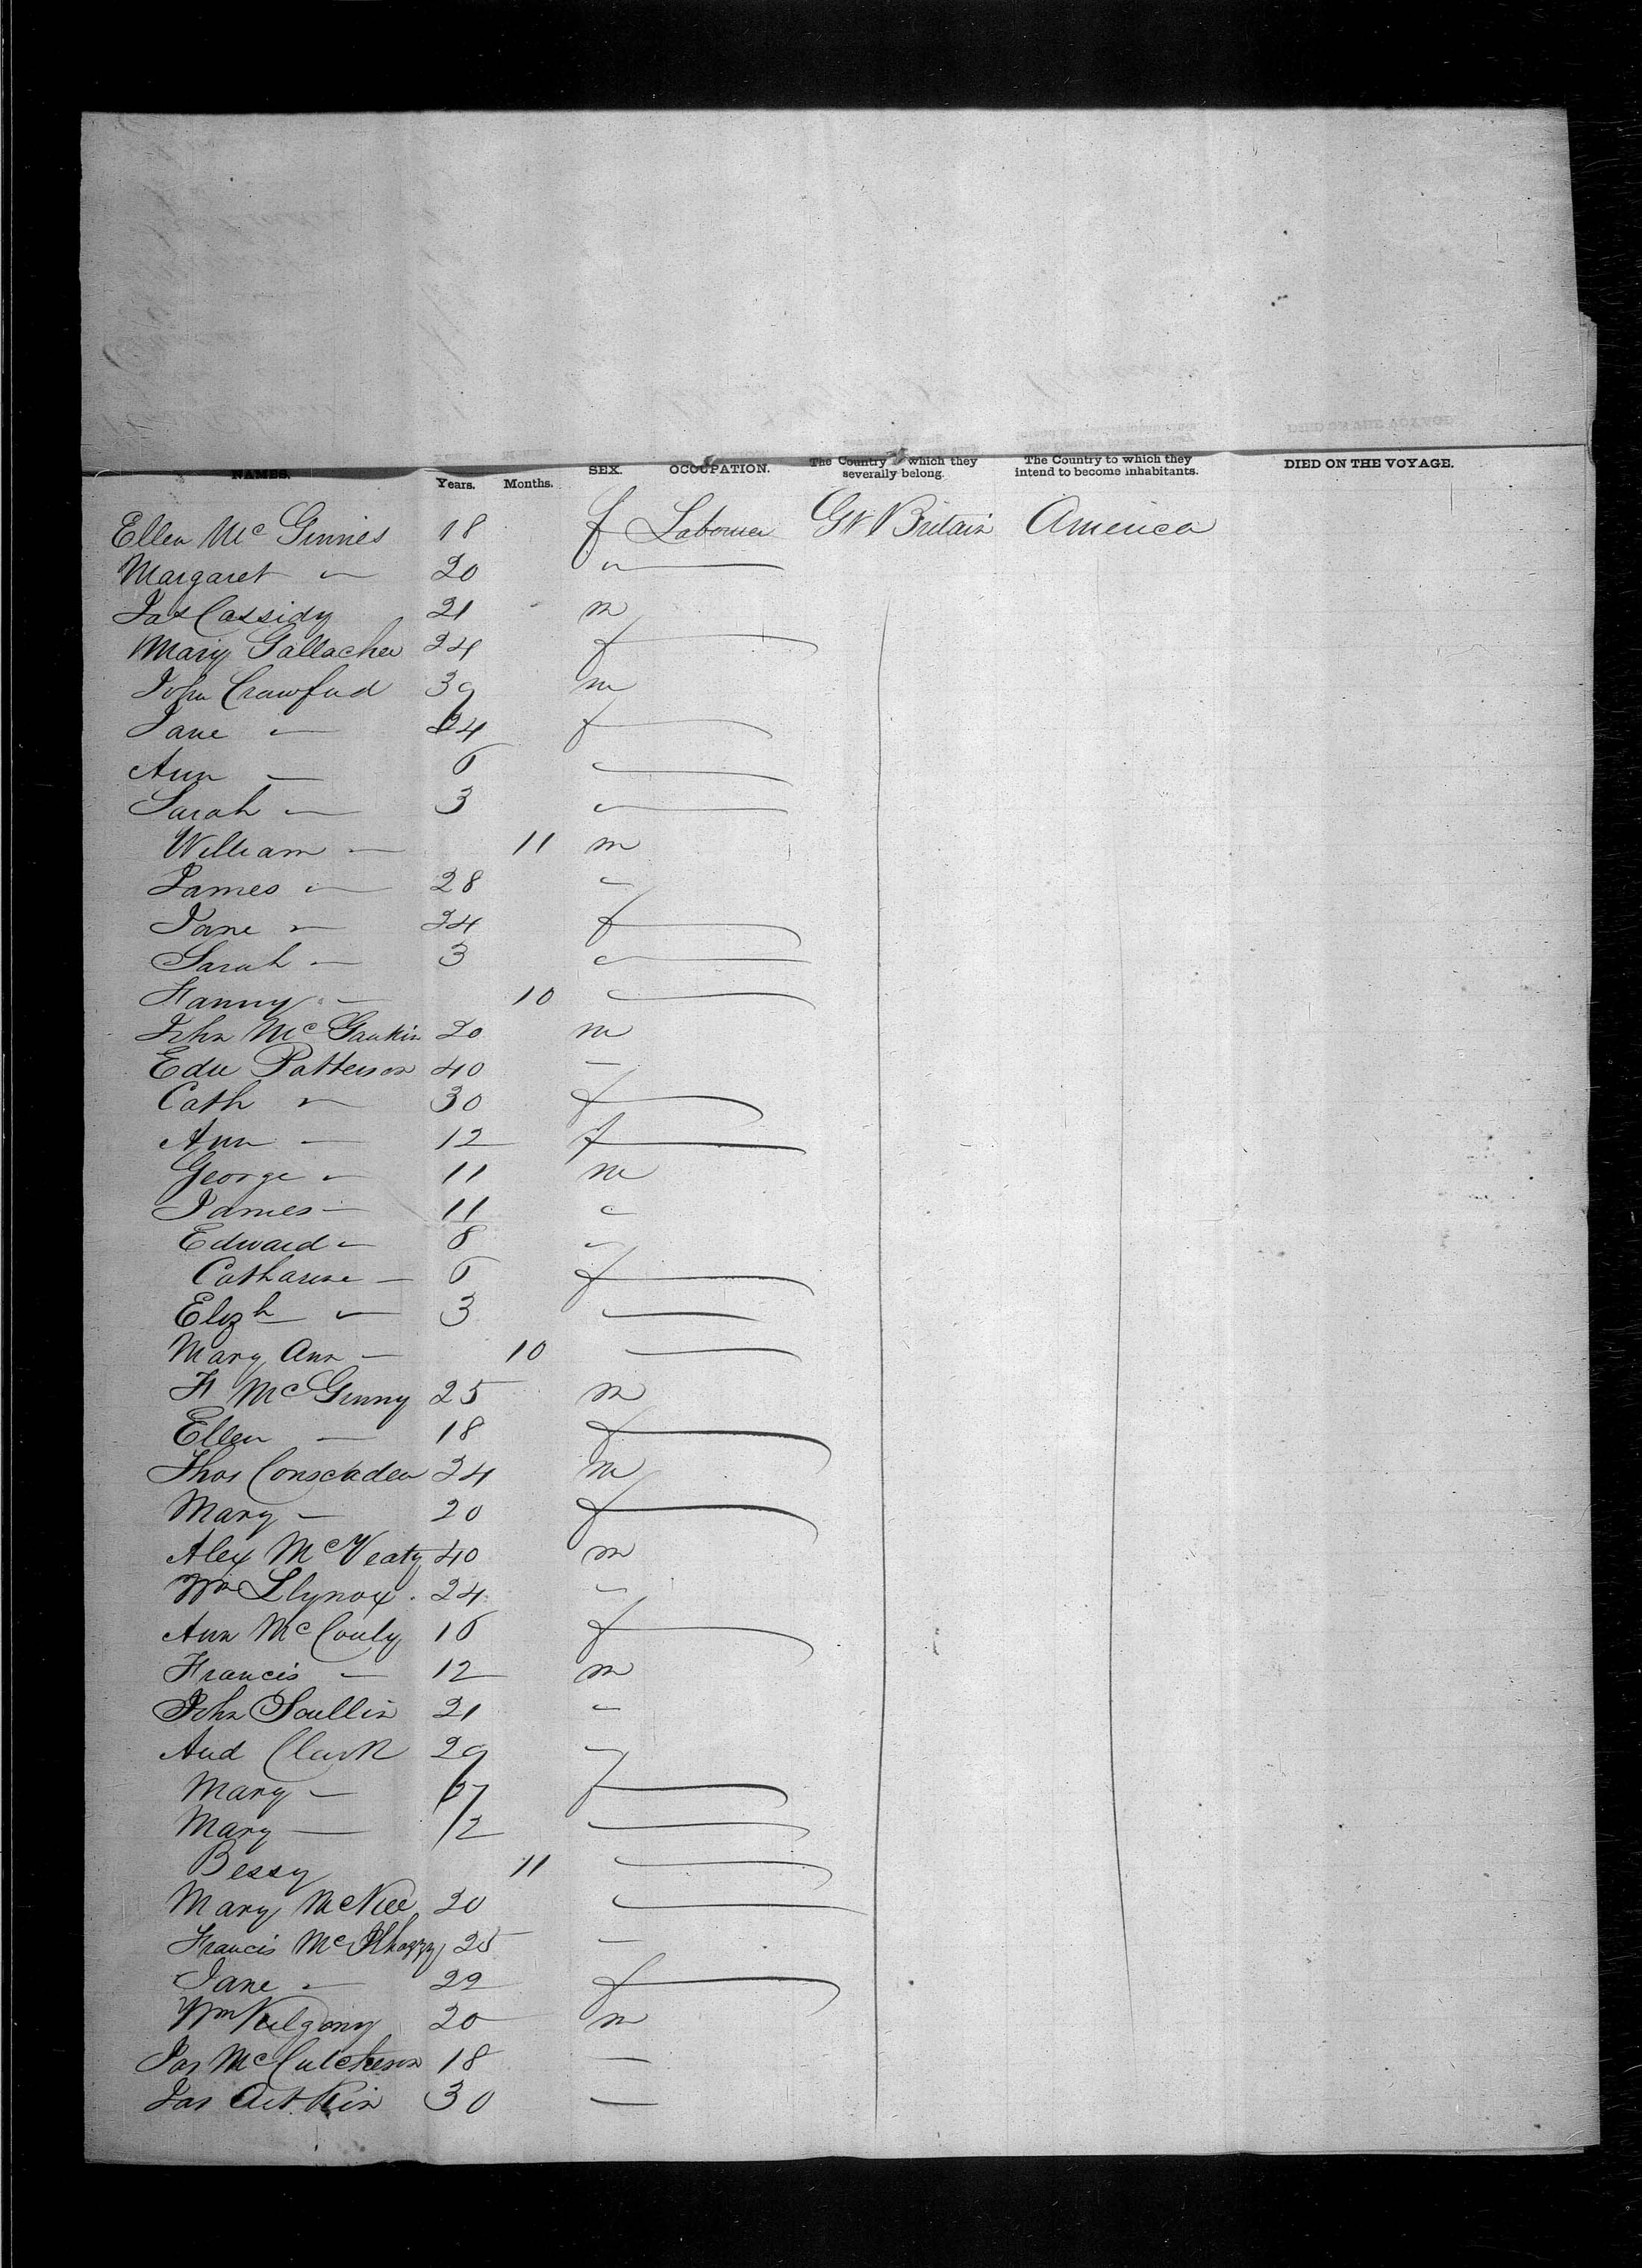 NAMES. Years. Months. SEX. OCCUPATION. The Country to which they severally belong. The Country to which they intend to become inhabitants. DIED ON THE VOYAGE.
Ellen Mc Ginnes 18 f Labourer Gt Britain America
Margaret " 20 "
Jas Cassidy 21 m
Mary Gallacher 24 f
John Crawfud 39 m
Jane " 24 f
Ann — 6 "
Sarah — 3 "
William — 11 m
James " 28 "
Jane " 24 f
Sarah — 3 "
Fanny — 10 "
John Mc 20 m
Edu Patterson 40 —
Cath " 30 f
Ann — 12 f
George " 11 m
James — 11 "
Edward " 8 "
Catharine — 6 f
Elizh " 3 "
Mary Ann — 10 "
Mc Ginny 25 m
Ellen — 18 f
Thos 24 m
Mary — 20 f
Alex McVeaty 40 m
Wm Llynox . 24 "
Ann Mc Couly 16 f
Francis — 12 m
John Scullin 21 "
And Clark 29 "
Mary — 27 f
Mary — 12 "
Bessy 11 "
Mary McNice 20 "
Francis Mc 25 —
Jane " 22 f
Wm Kilgony 20 m
Jas McCutcheson 18 —
Jas Aitkin 30 —